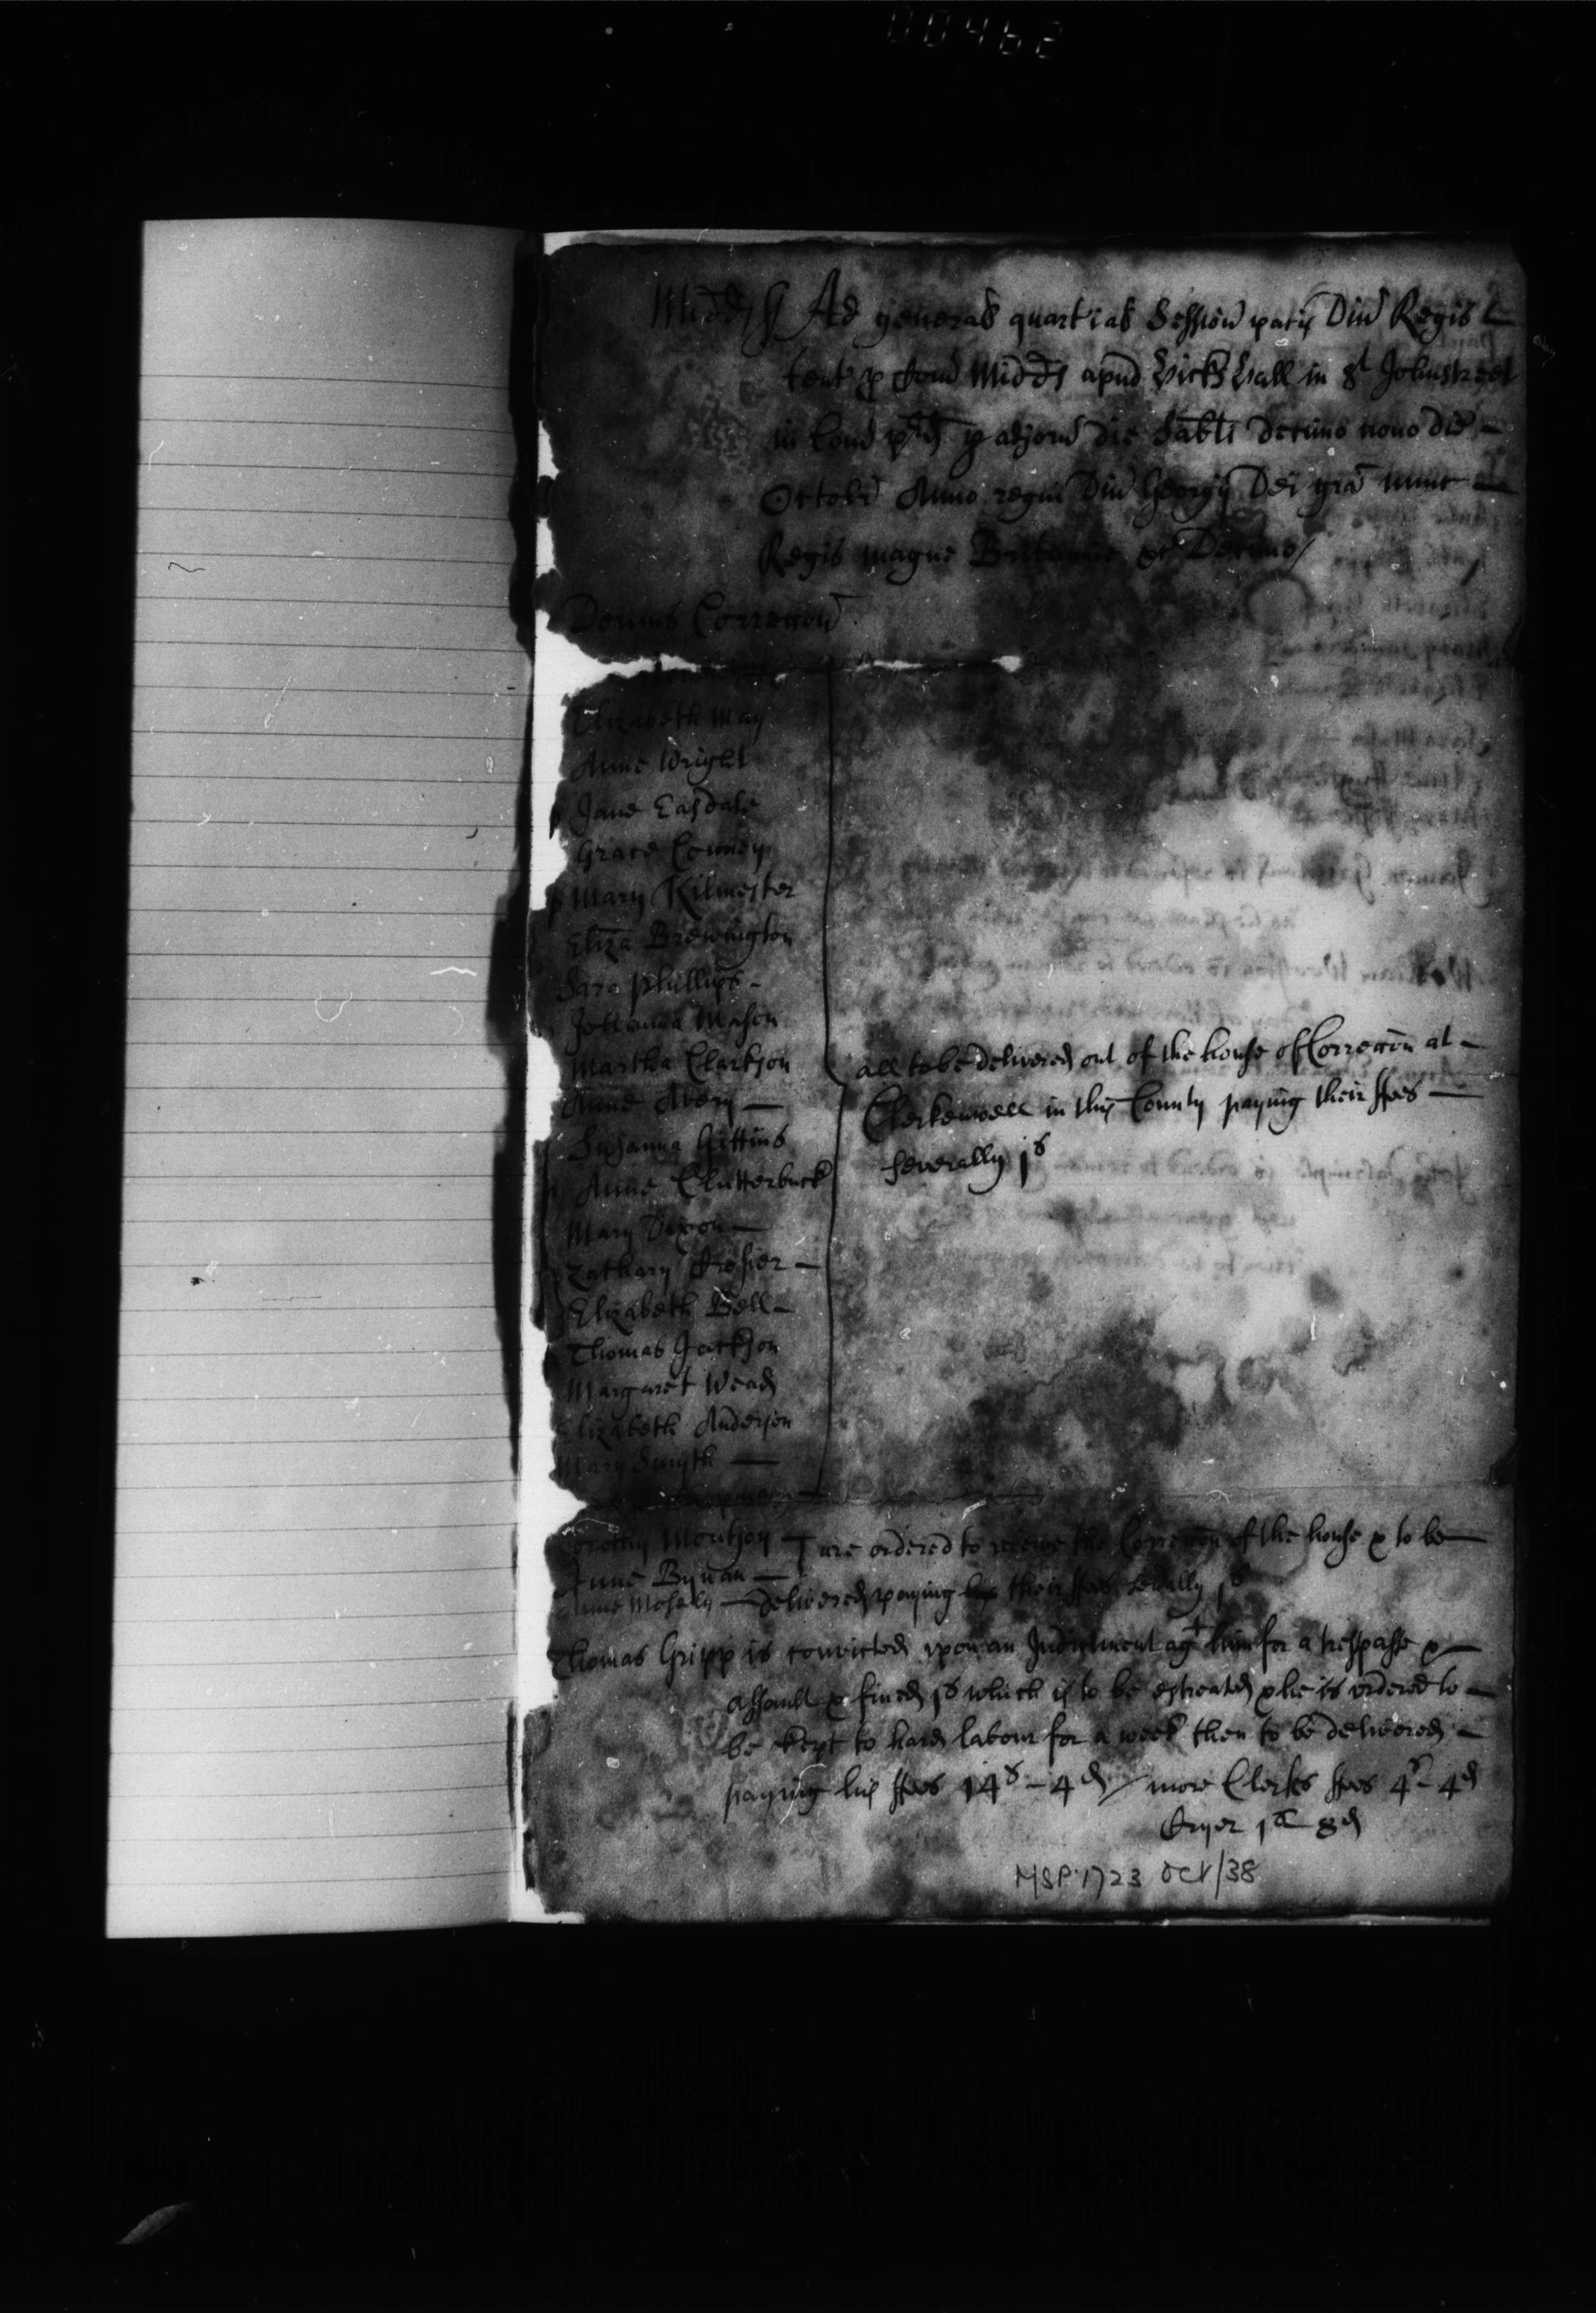 00462
Midds Ad general quartial Session pacis Dni Regis
tent p Com Midds apud Hicks Hall in St Johnstreet
in Com pred p adjorn die Sabti Decimo nono die
Octobr Anno regni Dni Georgij Dei gra nunc
Regis magne Britannie &c Decimo
Domus Correccon
Elizabeth May
Anne Wright
Jane Easdale
Grace Conney
p Mary Kilmester
Eliza Brewington
Sara Phillips
Johanna Mason
Martha Clarkson
Anne Avery
Susanna Gittins
Anne Clutterbuck
Mary Dixon
Zachary Crosier
Elizabeth Bell
Thomas Jackson
Margaret Wead
Elizabeth Anderson
Mary Smyth
all to be delivered out of the house of Correccon at
Clerkenwell in this County paying their ffees
severally 1s
Mountjoy are ordered to receive the Correccon of the house & to be
Anne Bynan
Anne Mosely delivered paying his their ffees severally 1s
Thomas Gripp is convicted upon an Indictment agt him for a trespasse &
assault & fined 1s which is to be estreated & he is ordered to
be kept to hard labour for a week then to be delivered
paying his ffees 14s - 4d / more Clerks ffees 4s - 4d
Cryer 1s 8d
MSP. 1723 OCT/38